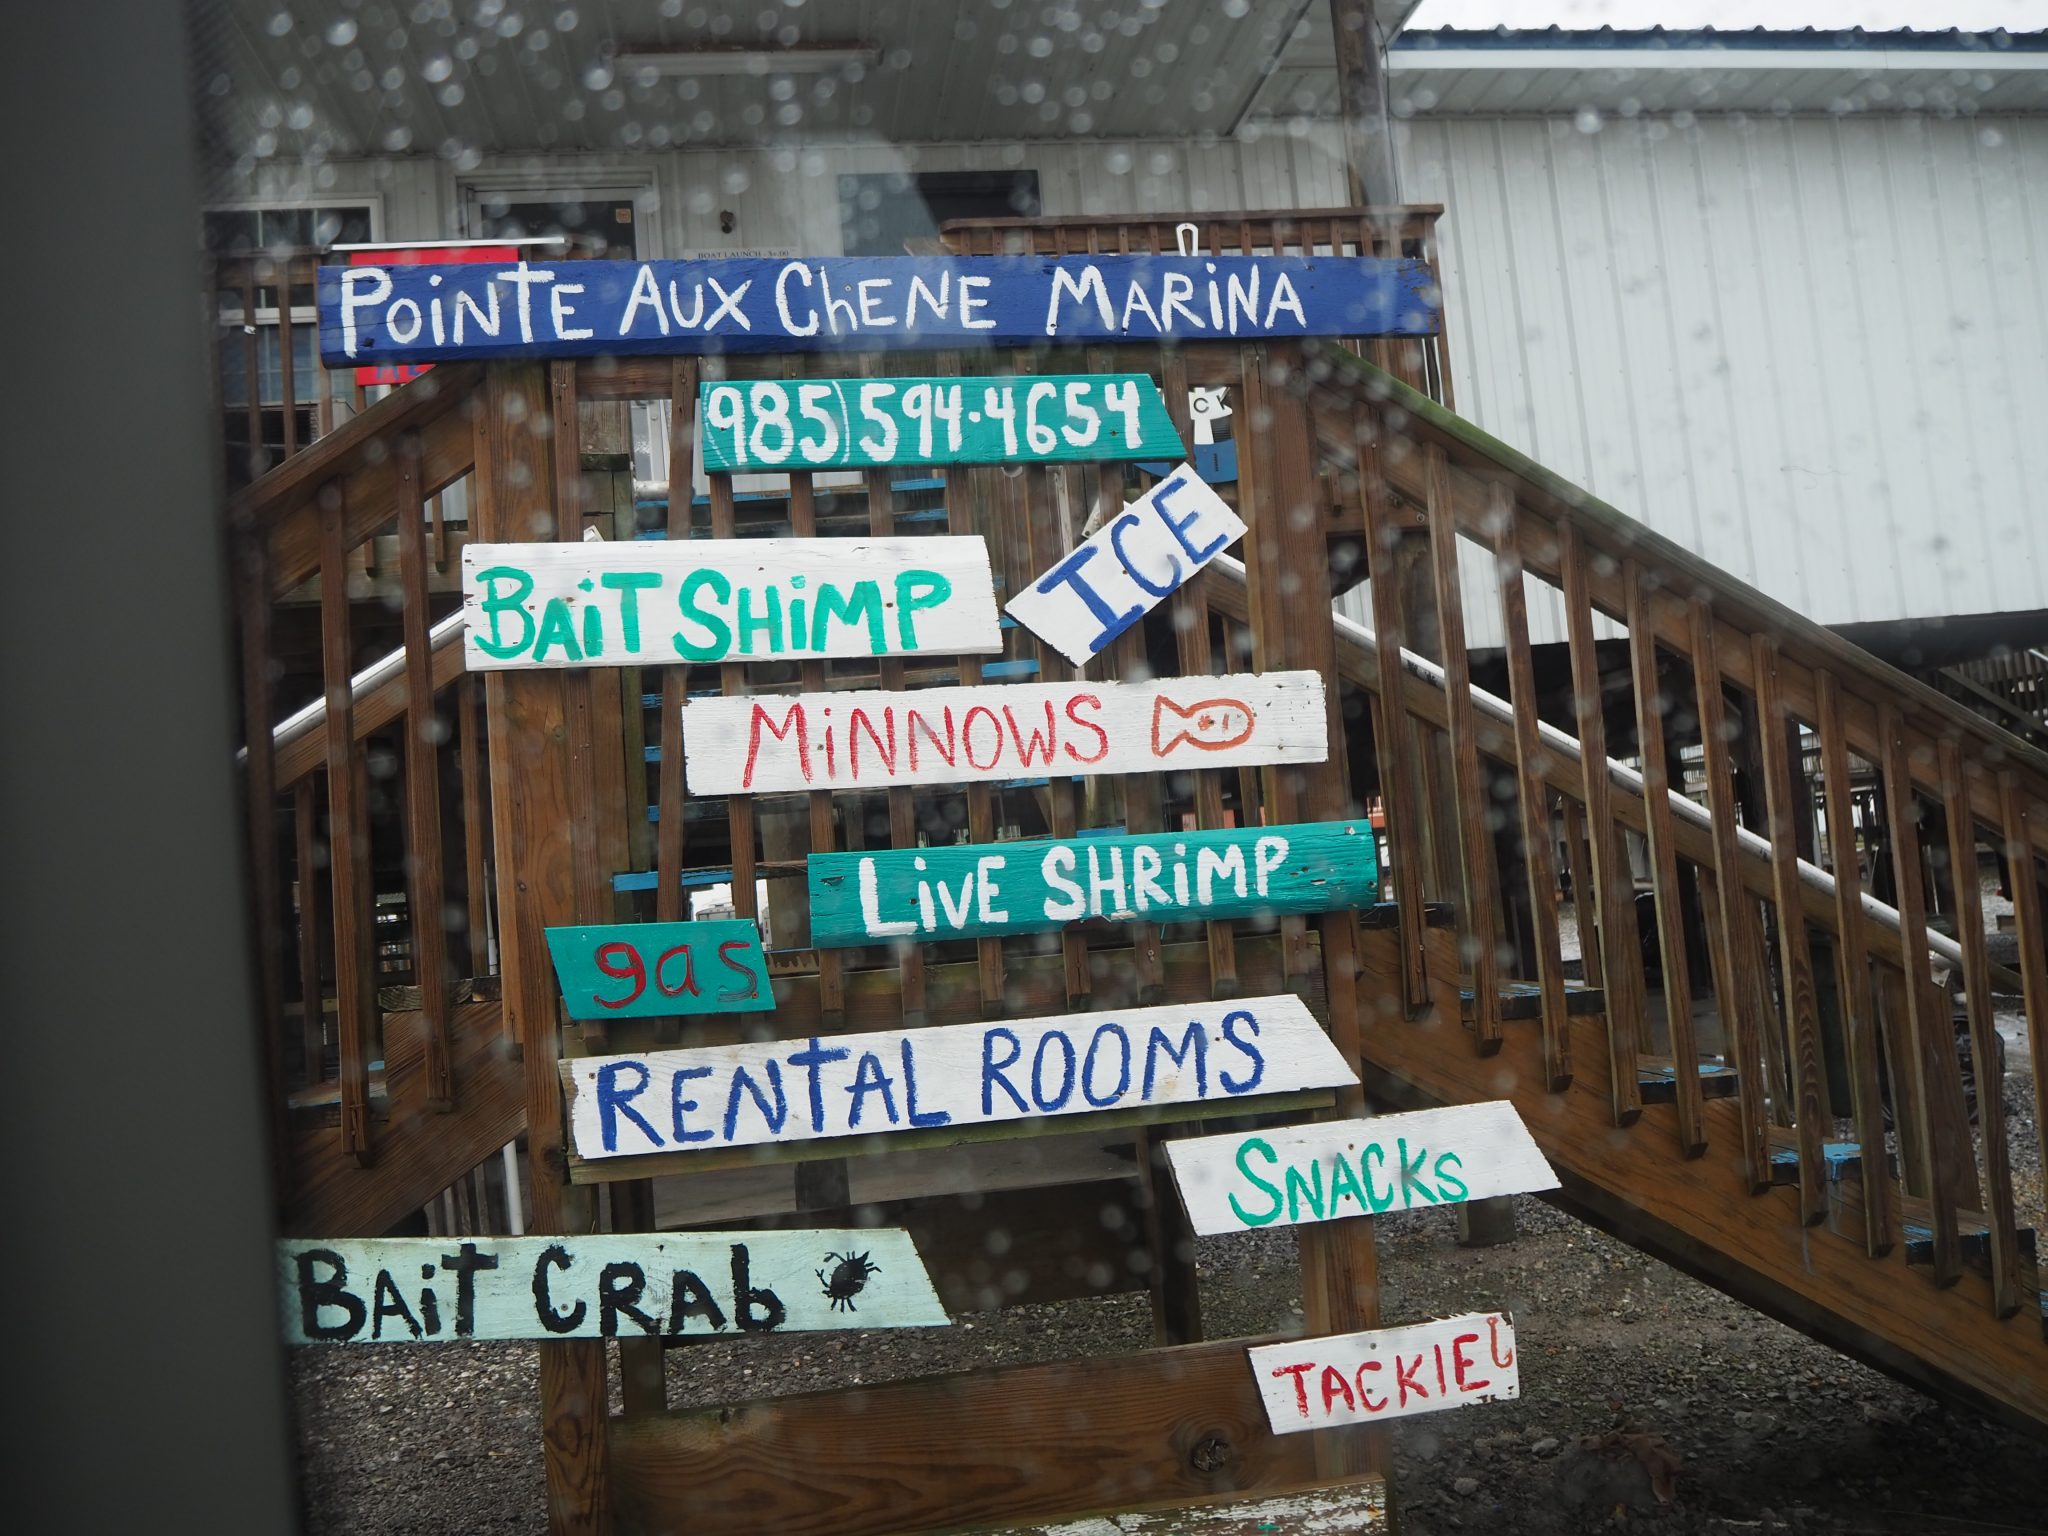 BOAT LAUNCH - $6.00
POiNTE AUX ChENE MARiNA
(985)594-4654
ICE
BAiT SHiMP
MiNNOWS
LivE SHRiMP
gas
RENTAL ROOMS
SNACKS
BAiT CRAb
TACKlE